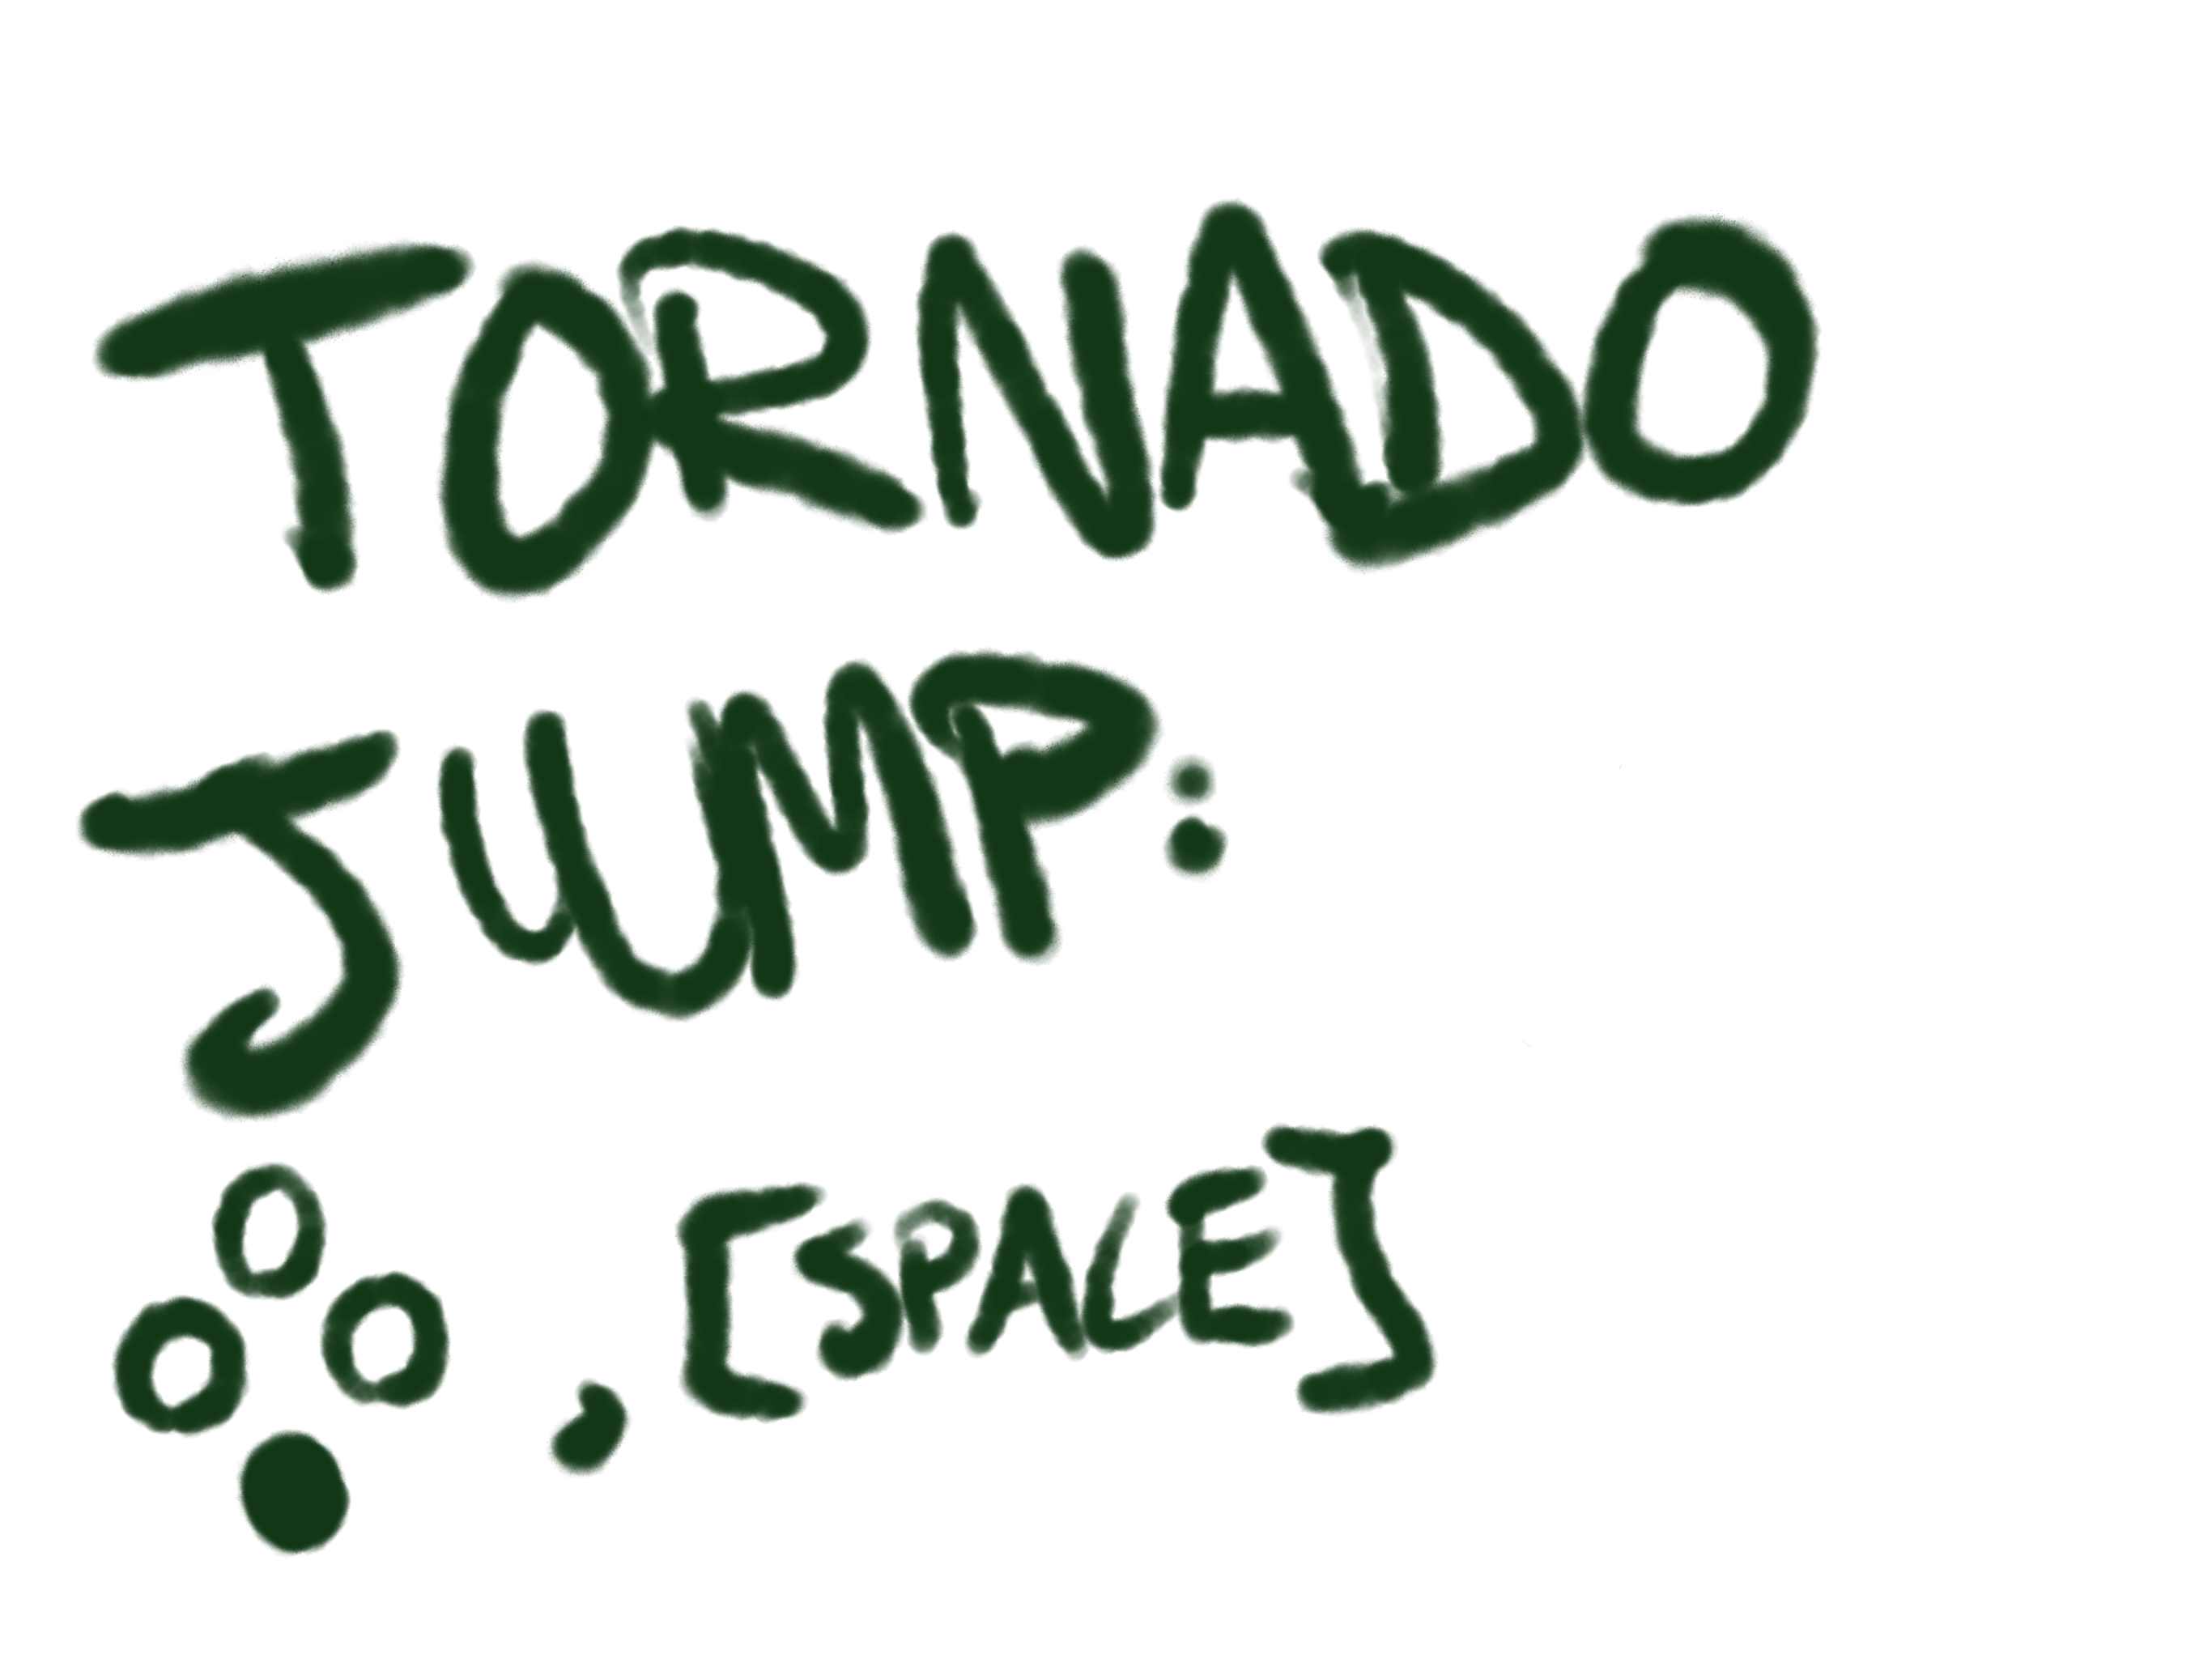 TORNADO
JUMP:
, [SPACE]